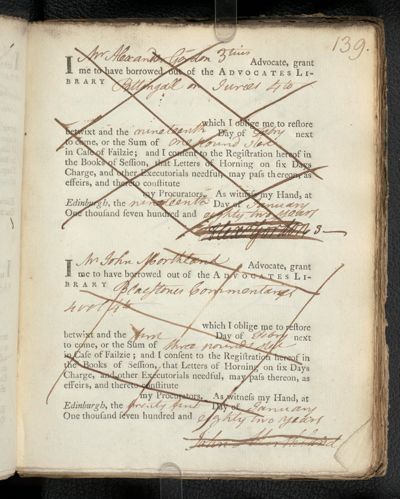 139.
I Mr Alexander Gordon Advocate, grant
me to have borrowed out of the ADVOCATES LI-
BRARY Pettingall on Juries 4to
which I oblige me to restore
betwixt and the nineteenth Day of Febry next
to come, or the Sum of One Pound Sterl
in Case of Failzie; and I consent to the Registration hereof in
the Books of Session, that Letters of Horning on six Days
Charge, and other Executorials needful, may pass thereon, as
effeirs, and thereto constitute
my Procurators. As witness my Hand, at
Edinburgh, the nineteenth Day of January
One thousand seven hundred and eighty two years
I Mr John Morthland Advocate, grant
me to have borrowed out of the ADVOCATES LI-
BRARY Blackstones Commentaries
4 vols
which I oblige me to restore
betwixt and the first Day of Febry next
to come, or the Sum of three pounds Sterl
in Case of Failzie; and I consent to the Registration hereof in
the Books of Session, that Letters of Horning on six Days
Charge, and other Executorials needful, may pass thereon, as
effeirs, and thereto constitute
my Procurators. As witness my Hand, at
Edinburgh, the twenty first Day of January
One thousand seven hundred and eighty two years
John Morthland